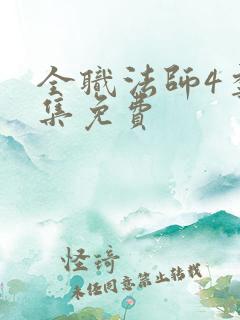 全職法師4
集免費
怪琦
未经同意禁止转载